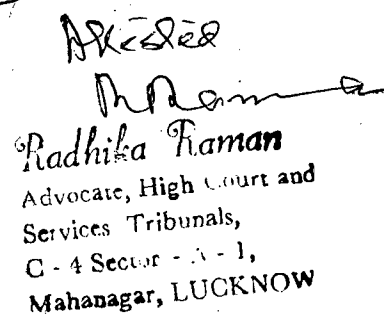 Attested
Radhika Raman
Advocate, High Court and
Services Tribunals,
C - 4 Sector - A - 1,
Mahanagar, LUCKNOW